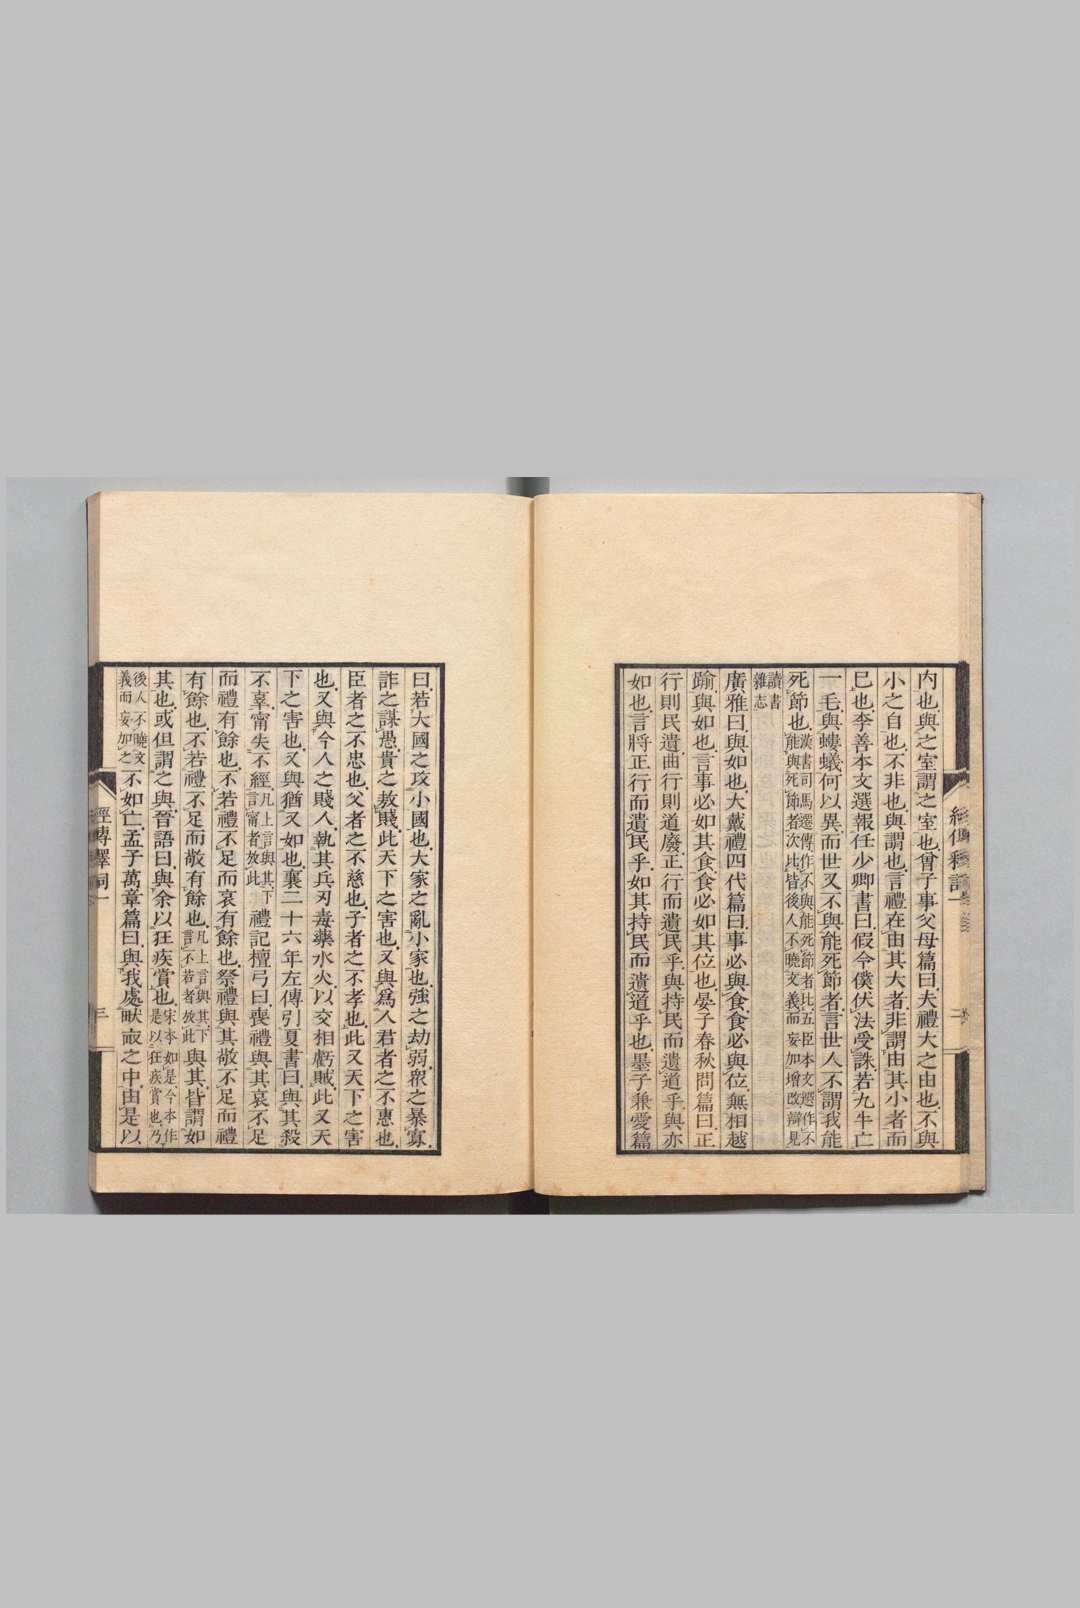 內也與之室謂之室也曾子事父母篇曰夫禮大之由也不與
小之自也不非也與謂也言禮在由其大者非謂由其小者而
已也李善本文選報任少卿書曰假令僕伏法受誅若九牛亡
一毛與螻蟻何以異而世又不與能死節者言世人不謂我能
死節也漢書司馬遷傳作不與能死節者比五臣本文選作不
能與死節者次比皆後人不曉文義而妄加增改辯見
讀書
雜志
廣雅曰與如也大戴禮四代篇曰事必與食食必與位無相越
踰與如也言事必如其食食必如其位也晏子春秋問篇曰正
行則民遺曲行則道廢正行而遺民乎與持民而遺道乎與亦
如也言將正行而遺民乎如其持民而遺道乎也墨子兼愛篇
經傳釋詞一
二
曰若大國之攻小國也大家之亂小家也強之劫弱眾之暴寡
詐之謀愚貴之敖賤此天下之害也又與爲人君者之不惠也
臣者之不忠也父者之不慈也子者之不孝也此又天下之害
也又與今人之賤人執其兵刃毒藥水火以交相虧賊此又天
下之害也又與猶又如也襄二十六年左傳引夏書曰與其殺
不辜甯失不經凡上言與其下
言甯者放此禮記檀弓曰喪禮與其哀不足
而禮有餘也不若禮不足而哀有餘也祭禮與其敬不足而禮
有餘也不若禮不足而敬有餘也凡上言與其下
言不若者放此與其皆謂如
其也或但謂之與晉語曰與余以狂疾賞也宋本如是今本作
是以狂疾賞也乃
後人不曉文
義而妄加之不如亡孟子萬章篇曰與我處畎畝之中由是以
經傳釋詞一
三